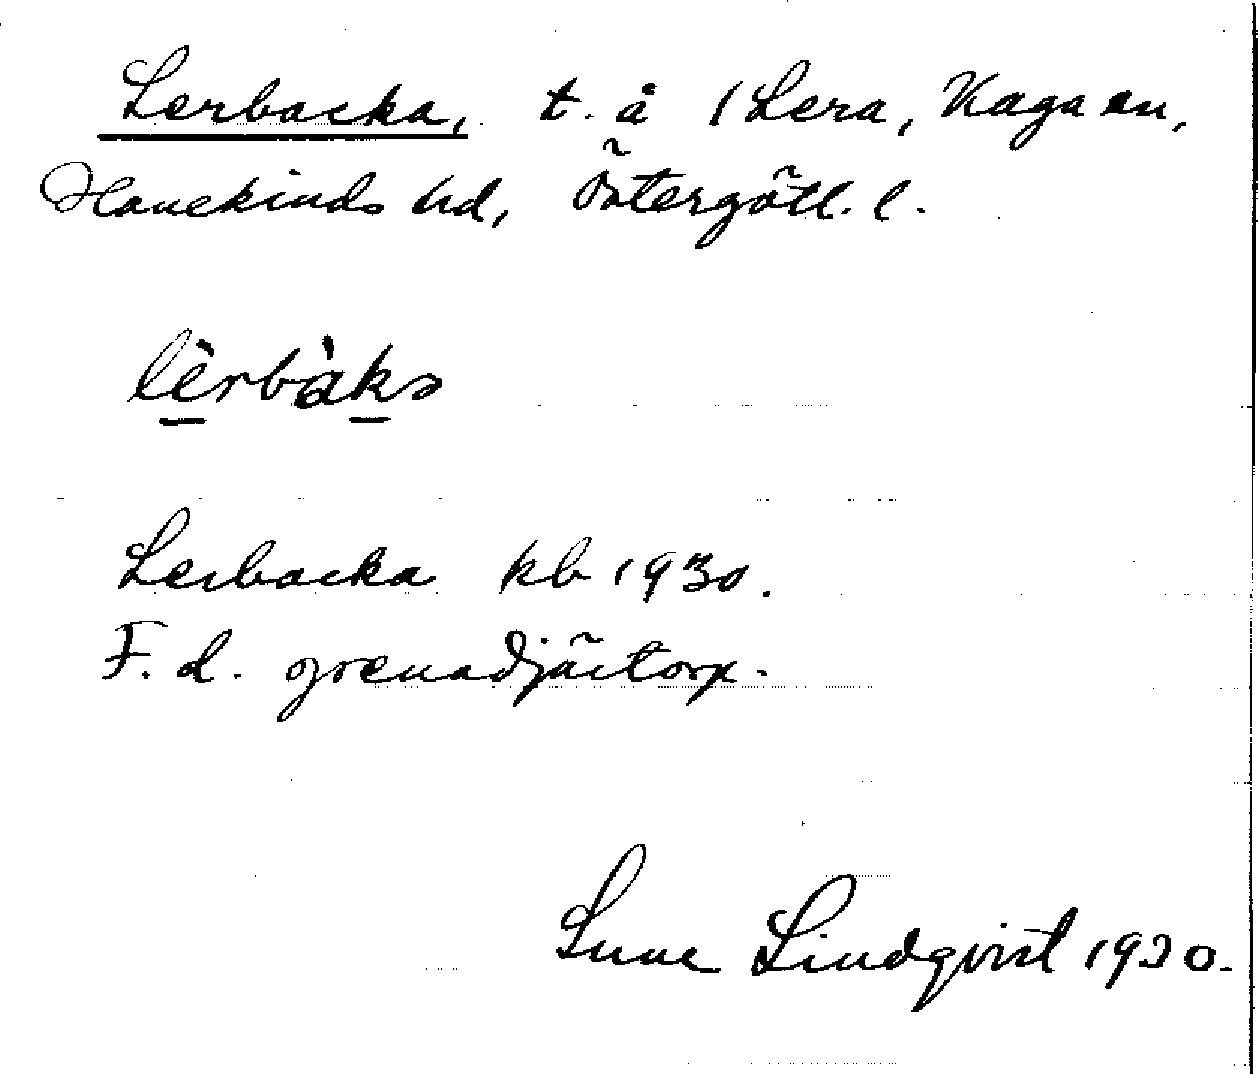 Lerbacka, t. å 1 Lera, Kaga sn,
Hanekinds hd, Östergötl. l.
lèrbàkə
Lerbacka kb 1930.
F. d. grenadjärtorp.
Sune Lindqvist 1930.